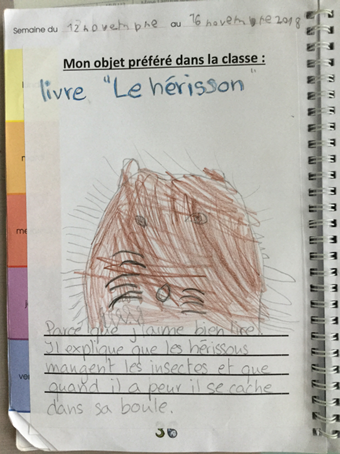 Semaine du 12 novembre au 16 novembre 2018
Mon objet préféré dans la classe :
livre "Le hérisson"
Parce que j'aime bien lire.
Il explique que les hérissons
mangent les insectes et que
quand il a peur il se cache
dans sa boule.